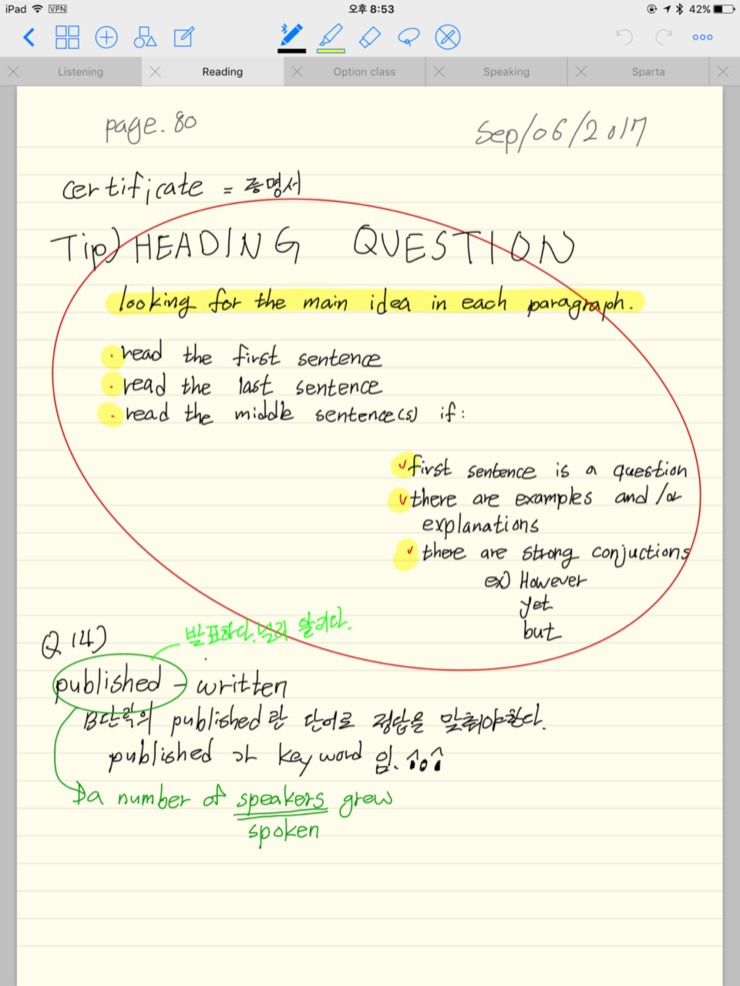 iPad VPN 오후 8:53 42%
Listening Reading Option class Speaking Sparta
page. 80 Sep/06/2017
certificate = 증명서
Tip) HEADING QUESTION
looking for the main idea in each paragraph.
· read the first sentence
· read the last sentence
· read the middle sentence(s) if:
✓ first sentence is a question
✓ there are examples and /or
explanations
✓ there are strong conjuctions
ex) However
yet
but
발표하다. 널리 알리다.
Q 14)
published - written
B단락의 published란 단어로 정답을 맞춰야한다.
published 가 key word 임.
a number of speakers grew
spoken